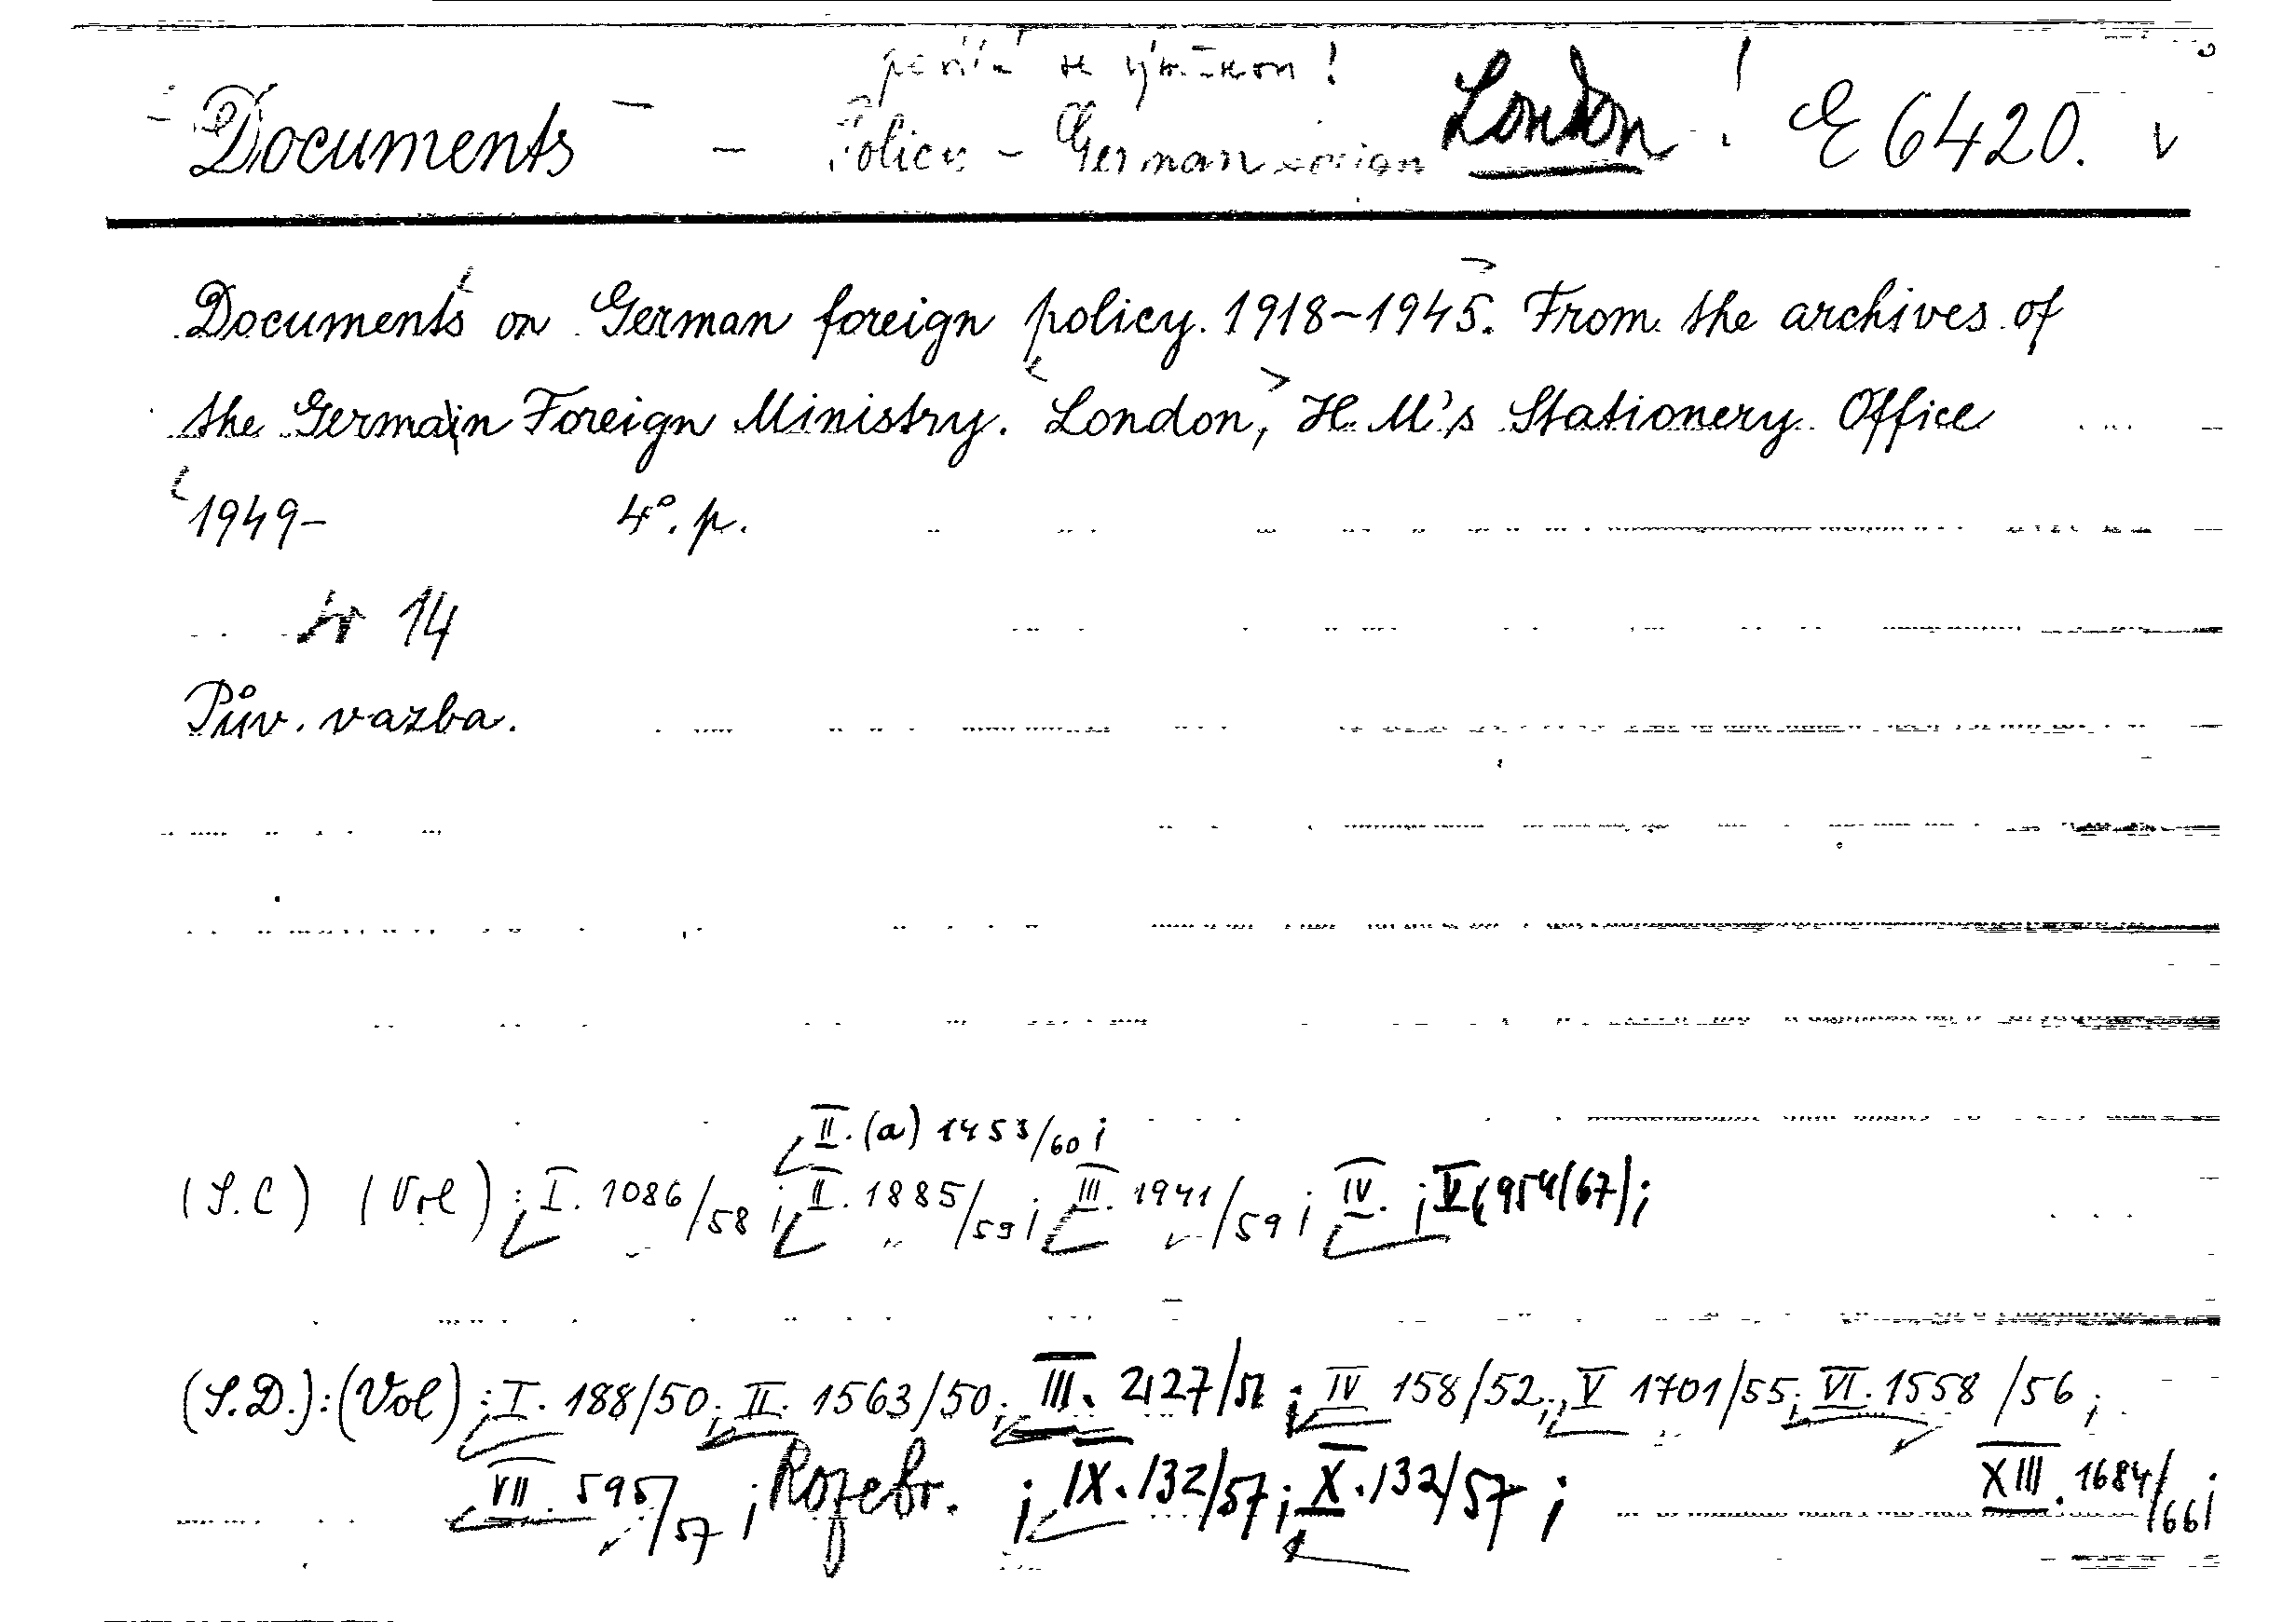 Documents - Policy - German foreign London ! E 6420.
Documents on German foreign policy. 1918-1945. From the archives of
the German Foreign Ministry. London, H.M's Stationery Office
1949- 4°. p.
14
Pův. vazba.
II. (a) 1453/60;
(S.C) (Vol): I. 1086/58; II. 1885/59; III. 1941/59; IV. ; V (954/67);
(S.D.): (Vol): I. 188/50; II. 1563/50; III. 2127/51; IV 158/52; V 1701/55; VI. 1558/56;
VII. 595/57; Rozebr. ; IX. 132/57; X. 132/57; XIII. 1684/66;